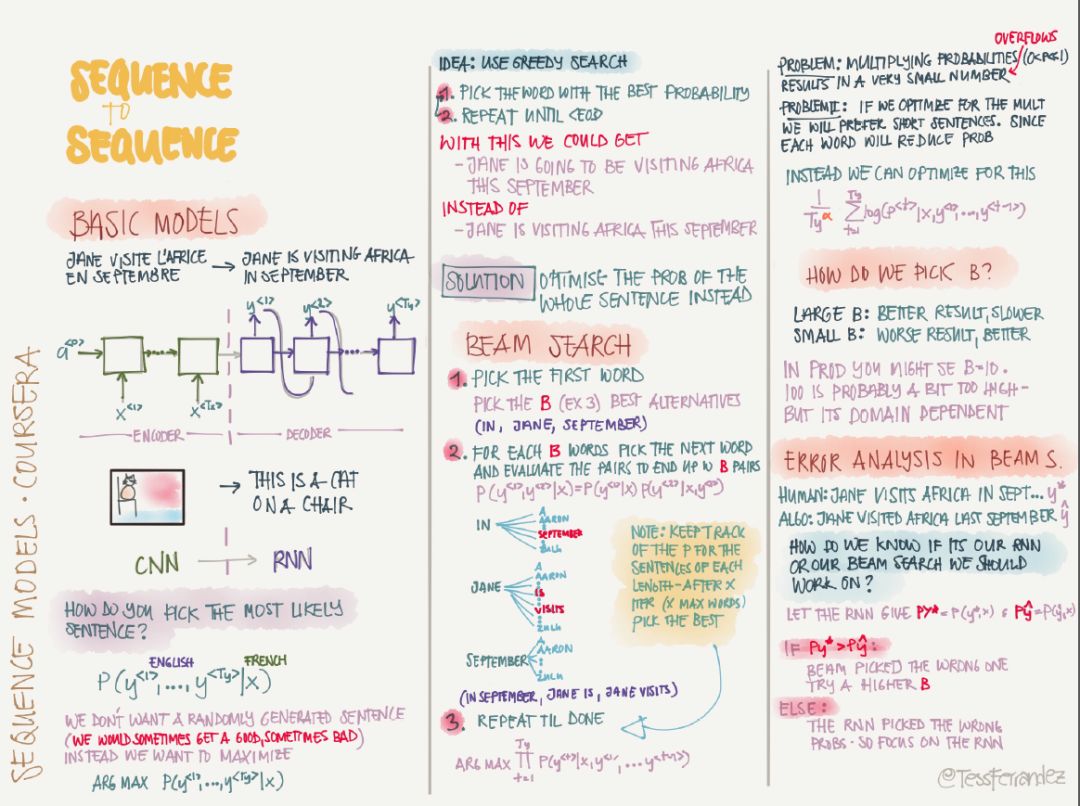 SEQUENCE
TO
SEQUENCE
BASIC MODELS
JANE VISITE L'AFRICE
EN SEPTEMBRE
→ JANE IS VISITING AFRICA
IN SEPTEMBER
y<1> y<2> y<Ty>
a<0>
x<1> x<Tx>
ENCODER DECODER
→ THIS IS A CAT
ON A CHAIR
CNN → RNN
HOW DO YOU PICK THE MOST LIKELY
SENTENCE?
ENGLISH FRENCH
P(y<1>,...,y<Ty>|x)
WE DON'T WANT A RANDOMLY GENERATED SENTENCE
(WE WOULD SOMETIMES GET A GOOD, SOMETIMES BAD)
INSTEAD WE WANT TO MAXIMIZE
ARG MAX P(y<1>,...,y<Ty>|x)
SEQUENCE MODELS · COURSERA
IDEA: USE GREEDY SEARCH
1. PICK THE WORD WITH THE BEST PROBABILITY
2. REPEAT UNTIL <EOS>
WITH THIS WE COULD GET
- JANE IS GOING TO BE VISITING AFRICA
THIS SEPTEMBER
INSTEAD OF
- JANE IS VISITING AFRICA THIS SEPTEMBER
SOLUTION OPTIMISE THE PROB OF THE
WHOLE SENTENCE INSTEAD
BEAM SEARCH
1. PICK THE FIRST WORD
PICK THE B (EX 3) BEST ALTERNATIVES
(IN, JANE, SEPTEMBER)
2. FOR EACH B WORDS PICK THE NEXT WORD
AND EVALUATE THE PAIRS TO END UP W B PAIRS
P(y<1>,y<2>|x)=P(y<1>|x) P(y<2>|x,y<1>)
IN
A
AARON
SEPTEMBER
ZULU
JANE
A
AARON
IS
VISITS
ZULU
SEPTEMBER
A
AARON
ZULU
NOTE: KEEP TRACK
OF THE P FOR THE
SENTENCES OF EACH
LENGTH - AFTER X
ITER (X MAX WORDS)
PICK THE BEST
(IN SEPTEMBER, JANE IS, JANE VISITS)
3. REPEAT TIL DONE
ARG MAX ∏ Ty t=1 P(y<t>|x,y<1>,...y<t-1>)
OVERFLOWS
PROBLEM: MULTIPLYING PROBABILITIES (0<P<<1)
RESULTS IN A VERY SMALL NUMBER
PROBLEM II: IF WE OPTIMIZE FOR THE MULT
WE WILL PREFER SHORT SENTENCES. SINCE
EACH WORD WILL REDUCE PROB
INSTEAD WE CAN OPTIMIZE FOR THIS
1/Ty^α ∑ Ty t=1 log(P<t>|x,y<1>,...,y<t-1>)
HOW DO WE PICK B?
LARGE B: BETTER RESULT, SLOWER
SMALL B: WORSE RESULT, BETTER
IN PROD YOU MIGHT SE B=10.
100 IS PROBABLY A BIT TOO HIGH -
BUT ITS DOMAIN DEPENDENT
ERROR ANALYSIS IN BEAM S.
HUMAN: JANE VISITS AFRICA IN SEPT... y*
ALGO: JANE VISITED AFRICA LAST SEPTEMBER ŷ
HOW DO WE KNOW IF ITS OUR RNN
OR OUR BEAM SEARCH WE SHOULD
WORK ON?
LET THE RNN GIVE Py*=P(y*,x) & Pŷ=P(ŷ,x)
IF Py*>Pŷ:
BEAM PICKED THE WRONG ONE
TRY A HIGHER B
ELSE:
THE RNN PICKED THE WRONG
PROBS - SO FOCUS ON THE RNN
@TessFerrandez